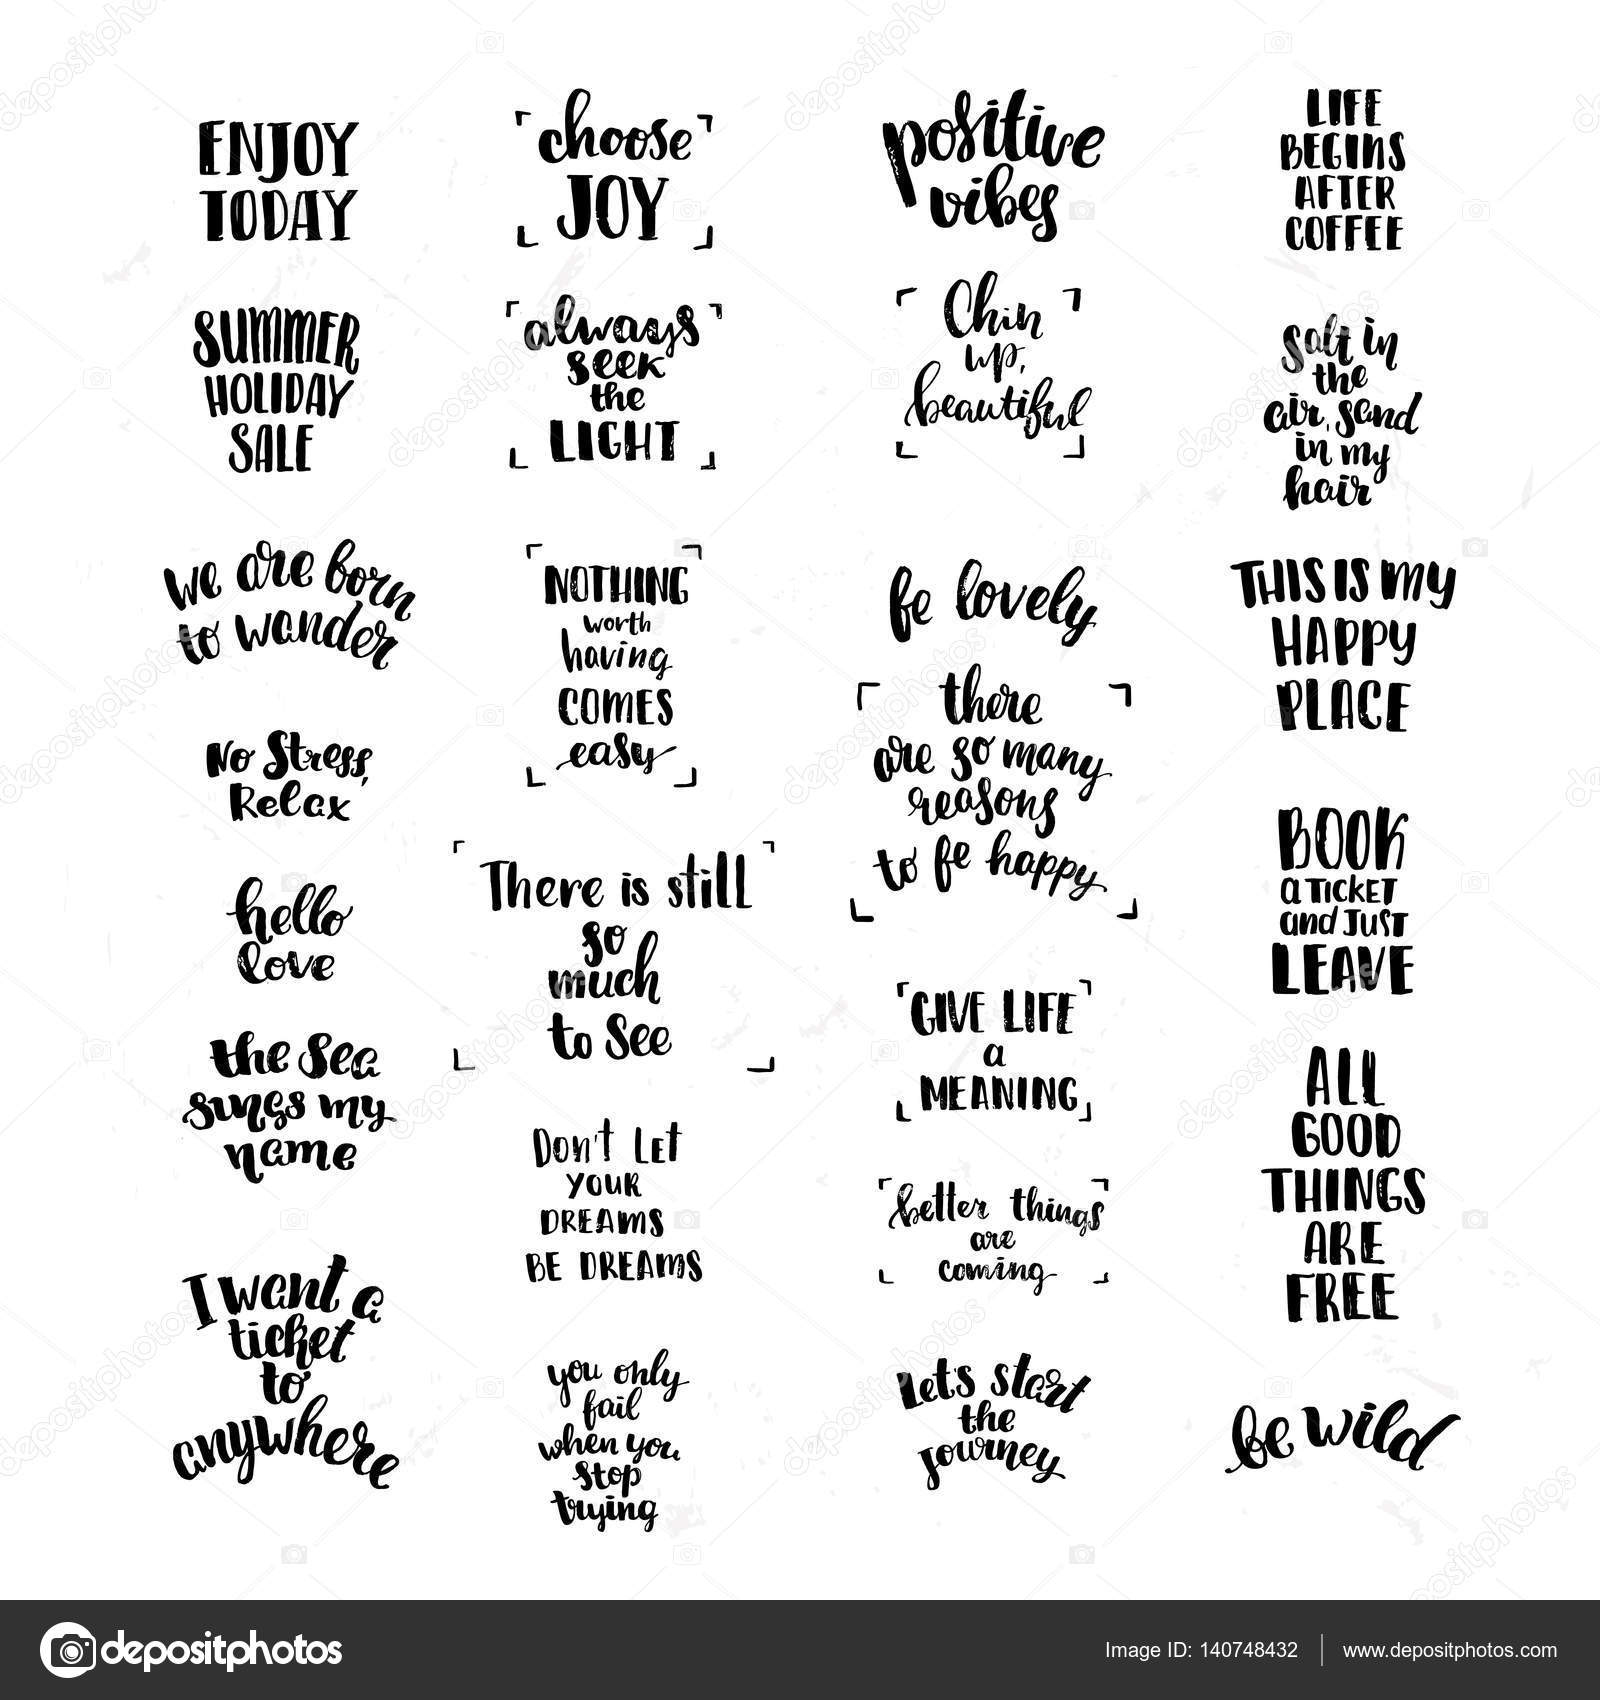 ENJOY
TODAY
SUMMER
HOLIDAY
SALE
We are born
to wander
No Stress,
Relax
hello
love
the sea
sings my
name
I want a
ticket
to
anywhere
choose
JOY
always
seek
the
LIGHT
NOTHING
worth
having
COMES
easy
There is still
so
much
to see
DON'T LET
YOUR
DREAMS
BE DREAMS
you only
fail
when you
stop
trying
positive
vibes
Chin
up,
beautiful
be lovely
there
are so many
reasons
to be happy
GIVE LIFE
a
MEANING
better things
are
coming
Let's start
the
journey
LIFE
BEGINS
AFTER
COFFEE
Salt in
the
air, sand
in my
hair
THIS IS MY
HAPPY
PLACE
BOOK
A TICKET
and JUST
LEAVE
ALL
GOOD
THINGS
ARE
FREE
be wild
depositphotos
Image ID: 140748432
www.depositphotos.com